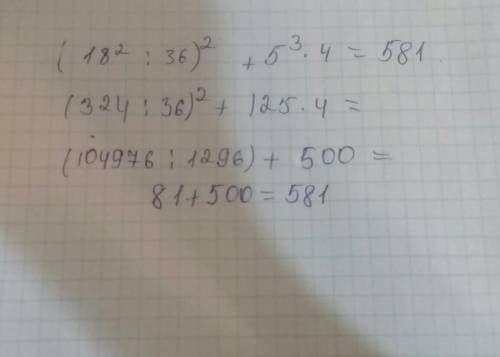 (18² : 36)² + 5³ · 4 = 581.
(324 : 36)² + 125 · 4 =
(104976 : 1296) + 500 =
81 + 500 = 581